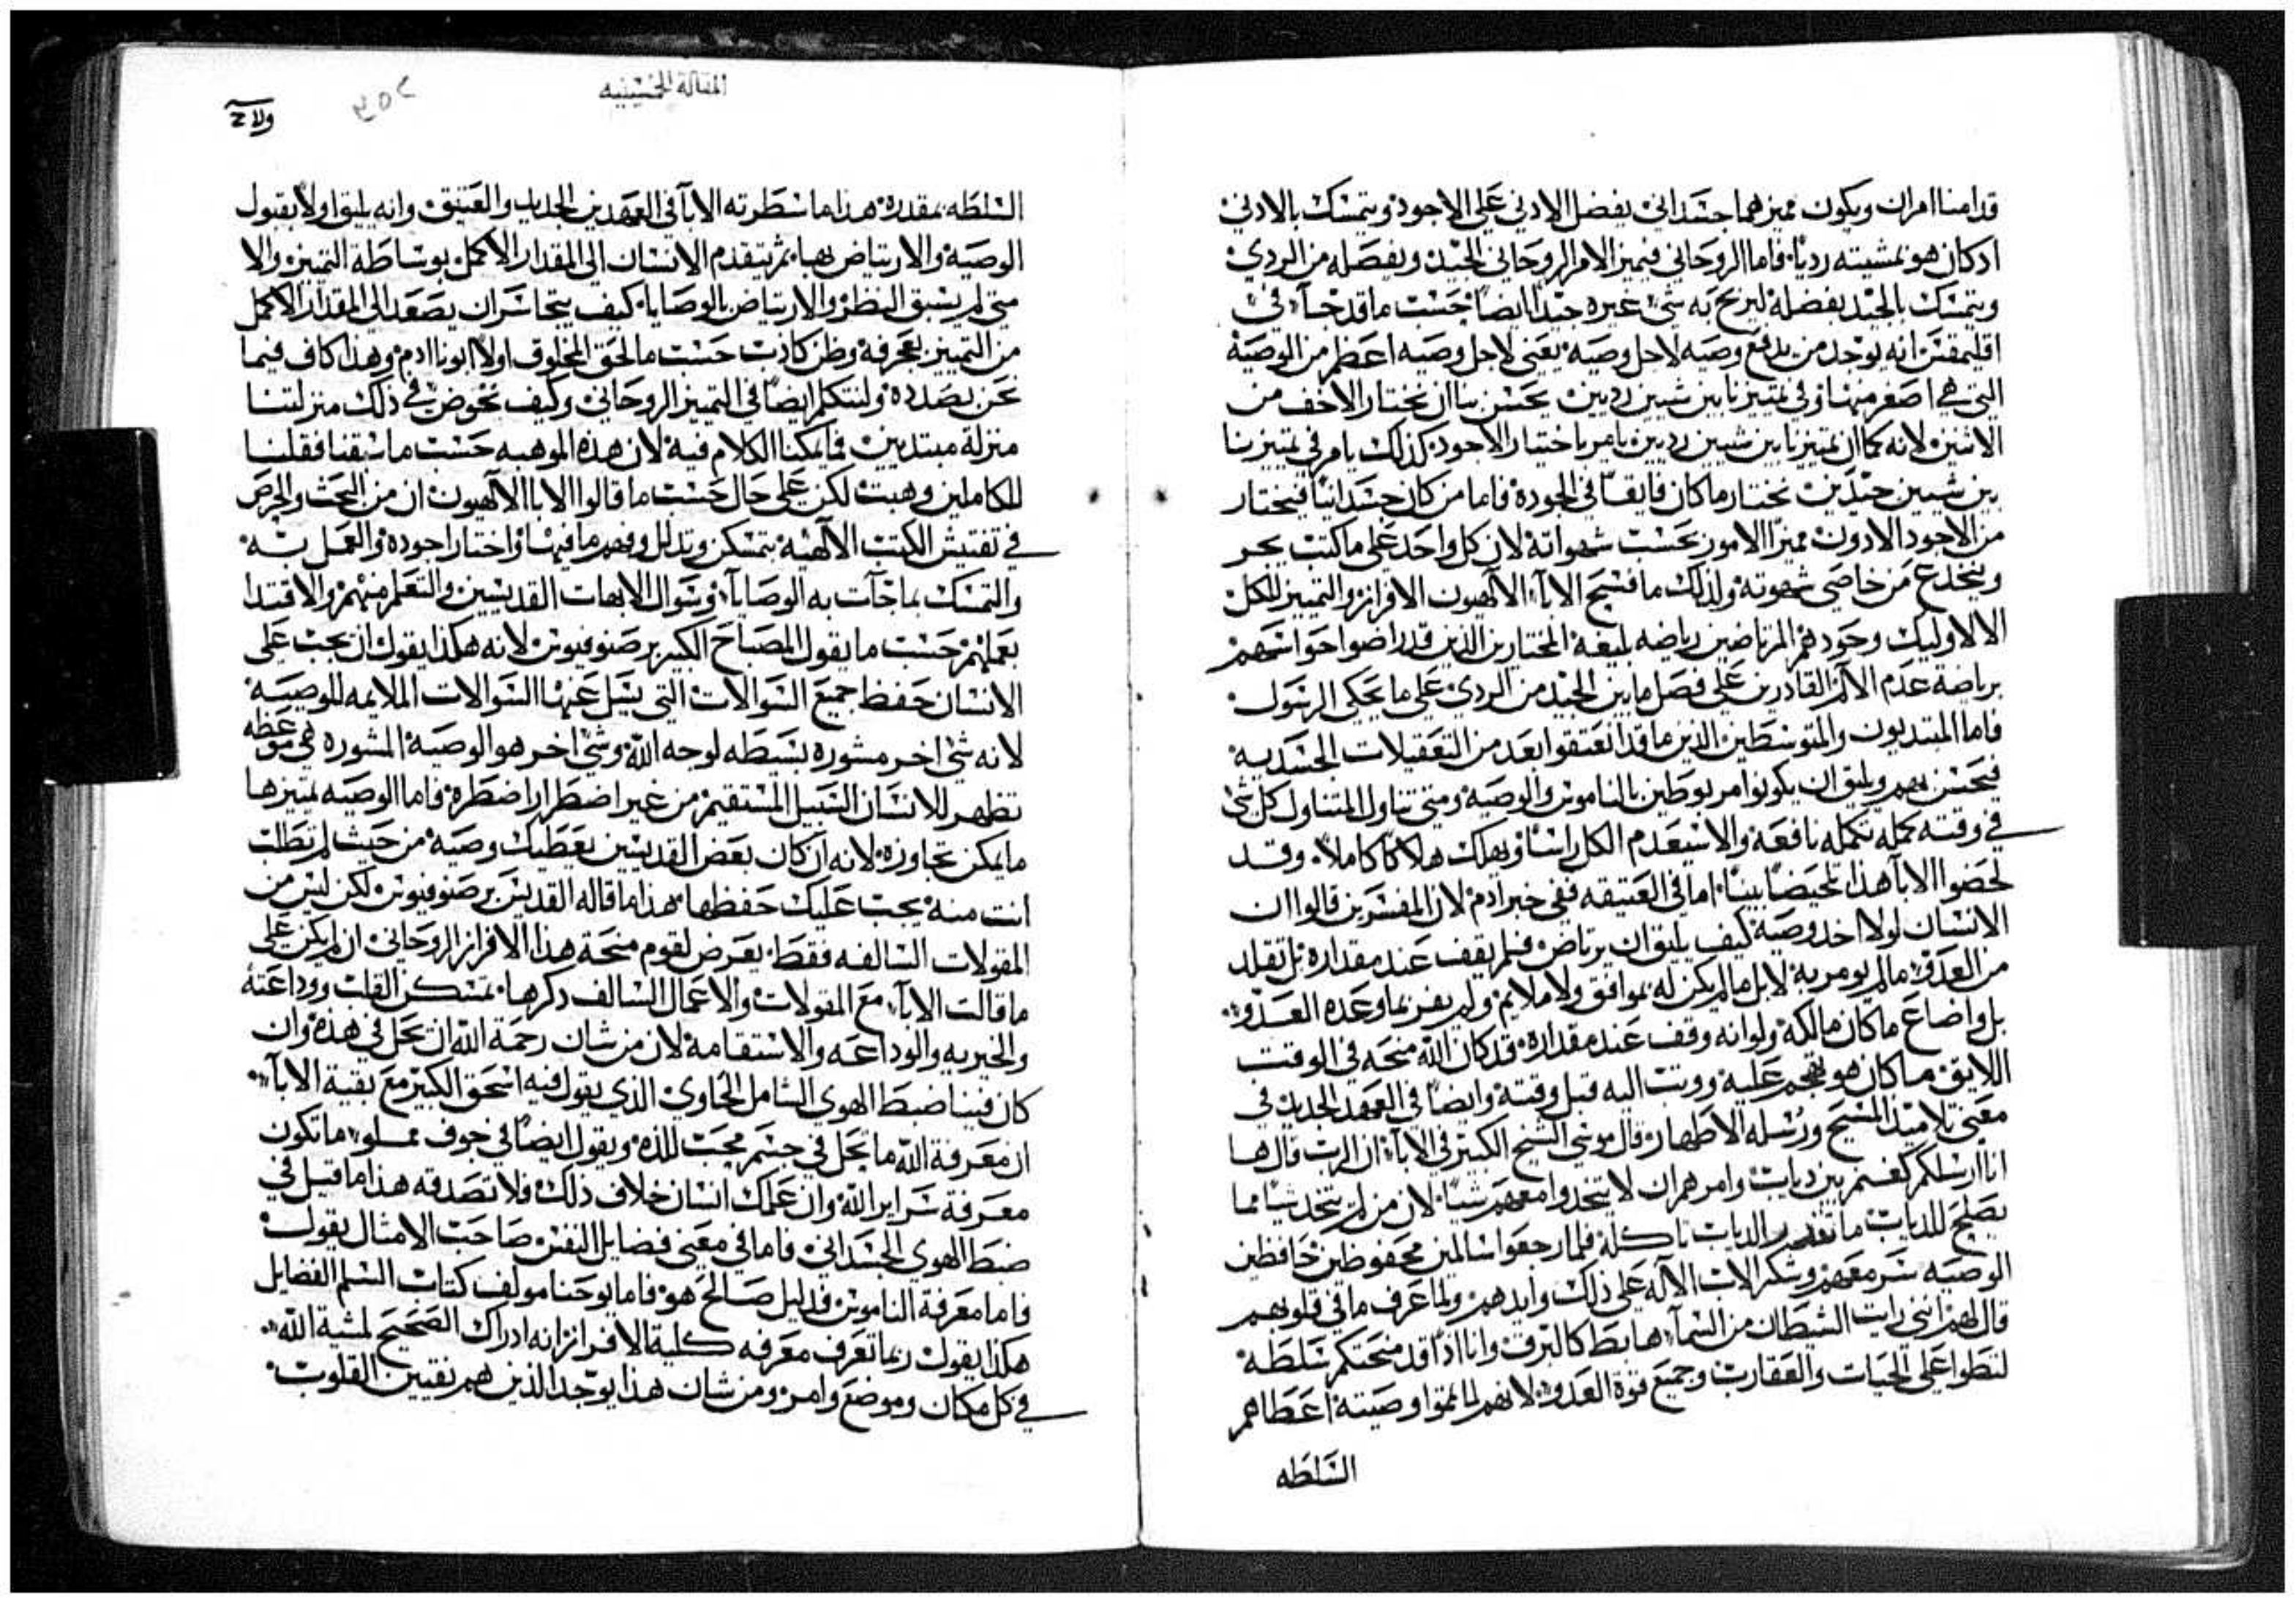 قدامنا امران ويكون مميزهما جسداني يفضل الادني علي الاجود ويتمسك بالادني
ادكان هو بمشيته رديا فاما الروحاني فيميز الامر الروحاني الجيد ويفصله من الردي
ويتمسك بالجيد بفضله ليربح به شي غيره جيدا ايضا حسب ما قد جآ في
اقليمقس انه يوجد من يدفع وصيه لاجل وصيه يعني لاجل وصيه اعظم من الوصيه
التي هي اصغر منها وفي تمييزنا بين شيين رديين يحسن بنا ان نختار الاخف من
الاثنين لانه كما ان تمييزنا بين شيين رديين يامر باختيار الاجود كذلك يامر في تمييزنا
بين شيين جيدين نختار ما كان فايقا في الجوده فاما من كان جسدانيا فيختار
من الاجود الادون مميزا الامور بحسب شهواته لان كل واحد علي ما كتب يجر
وينخدع من خاصي شهوته ولذلك ما فسح الابآ الالهيون الافراز والتمييز للكل
الا لاوليك وحودهم المرتاضين رياضه بليغه المختارين الذين قد راضوا حواسهم
برياضة عدم الالم القادرين علي فصل ما بين الجيد من الردي علي ما يحكي الرسول
فاما المبتديون والمتوسطين الذين ما قد انعتقوا بعد من التعقيلات الجسديه
فيحسن بهم ويليق ان يكونوا مربوطين بالناموس والوصيه ومتي تناول المتناول كل شي
في وقته كمله تكمله نافعه والا سيعدم الكل راسا ويهلك هلاكا كاملا وقد
لخصوا الابآ هذا تلخيصا بينا اما في العتيقه ففي خبر ادم لان المفسرين قالوا ان
الانسان لولا اخد وصية كيف يليق ان يرتاض فلم يقف عند مقداره بل تقلد
من العدو ما لم يومر به لا بل ما لم يكن له بموافق ولا ملايم ولم يفز بما وعده العدو
بل واضاع ما كان مالكه ولو انه وقف عند مقداره قد كان الله منحه في الوقت
اللايق ما كان هو تهجم عليه ووثب اليه قبل وقته وايضا في العهد الجديد في
معني تلاميد المسيح ورسله الاطهار قال موسي الشيخ الكبير في الابآ ان الرب قال ها
انا ارسلكم كغنم بين دياب وامرهم ان لا يتخدوا معهم شيا لان من لم يتخد شيا مما
يصلح للدياب ما تقدر الدياب تاكله فلما رجعوا سالمين محفوظين حافظين
الوصيه سر معهم وشكر الاب الاله علي ذلك وايدهم ولما عرف ما في قلوبهم
قال لهم انني رايت الشيطان من السمآ هابط كالبرق وانا اذا قد منحتكم سلطه
لتطوا علي الحيات والعقارب وجميع قوة العدو لانهم لما تمموا وصيته اعطاهم
السلطه
المقالة الخمسينيه
السلطه بمقدره هذا ما سطرته الابآ في العهدين الجديد والعتيق وانه يليق اولا بقبول
الوصيه والارتياض بها ثم يتقدم الانسان الي المقدار الاكمل بوساطة التمييز والا
متي لم يسبق النظر والارتياض بالوصايا كيف يتجاسر ان يصعد الي المقدار الاكمل
من التمييز بمعرفة وظن كاذب حسب ما لحق المخلوق اولا ابونا ادم وهذا كاف فيما
نحن بصدده ولنتكلم ايضا في التمييز الروحاني وكيف نخوض في ذلك منزلتنا
منزلة مبتديين فما يمكنا الكلام فيه لان هذه الموهبه حسب ما سبقنا فقلنا
للكاملين وهبت لكن علي حال حسب ما قالوا الابا الالهيون ان من البحث والحرص
في تفتيش الكتب الالهيه بتمسكن وتدلل وفهم ما فيها واختيار اجوده والعمل به
والتمسك بما جآت به الوصايآ وسوال الابهات القديسين والتعلم منهم والاقتدا
بعملهم حسب ما يقول المصباح الكبير برصنوفيوس لانه هكذا يقول ان يجب علي
الانسان حفظ جميع السوالات التي يسل عنها السوالات الملايمه للوصيه
لانه شي اخر مشوره بسيطه لوجه الله وشي اخر هو الوصيه المشوره هي موعظه
تظهر للانسان السبيل المستقيم من غير اضطرار اضطره فاما الوصيه تمييزها
ما يمكن تجاوزه لانه ان كان بعض القديسين يعطيك وصيه من حيث لم تطلب
انت منه يجب عليك حفظها هذا ما قاله القديس برصنوفيوس لكن ليس من
المقولات السالفه فقط يعرض لقوم منحة هذا الافراز الروحاني ان لم يكن علي
ما قالت الابآ مع المقولات والاعمال السالف دكرها بمسكن القلب ووداعته
والخيريه والوداعه والاستقامة لان من شان رحمة الله ان تحل في هذه وان
كان فينا ضبط الهوي الشامل الحاوي الذي يقول فيه اسحق الكبير مع بقية الابآ
ان معرفة الله ما تحل في جسم محب للذه ويقول ايضا في جوف مملو ما تكون
معرفة سراير الله وان علمك انسان خلاف ذلك فلا تصدقه هذا ما قيل في
ضبط الهوي الجسداني فاما في معني فضايل النفس صاحب الامثال يقول
فاما معرفة الناموس فدليل صالح هو فاما يوحنا مولف كتاب السلم الفضايل
هكذا يقول ربما تعرف معرفه كلية الافراز انه ادراك الصحيح لمشية الله
في كل مكان وموضع وامر ومن شان هذا يوجد الذين هم نقيين القلوب